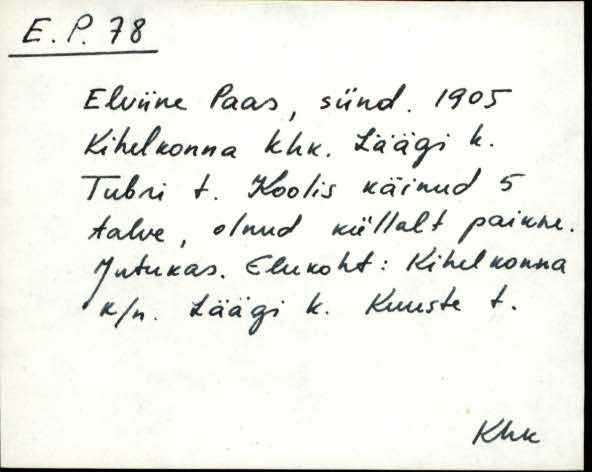 E.P. 78
Elviine Paas, sünd. 1905
Kihelkonna khk. Läägi k.
Tubri t. Koolis käinud 5
talve, olnud küllalt paikne.
Jutukas. Elukoht: Kihelkonna
k/n. Läägi k. Kuuste t.
Khk